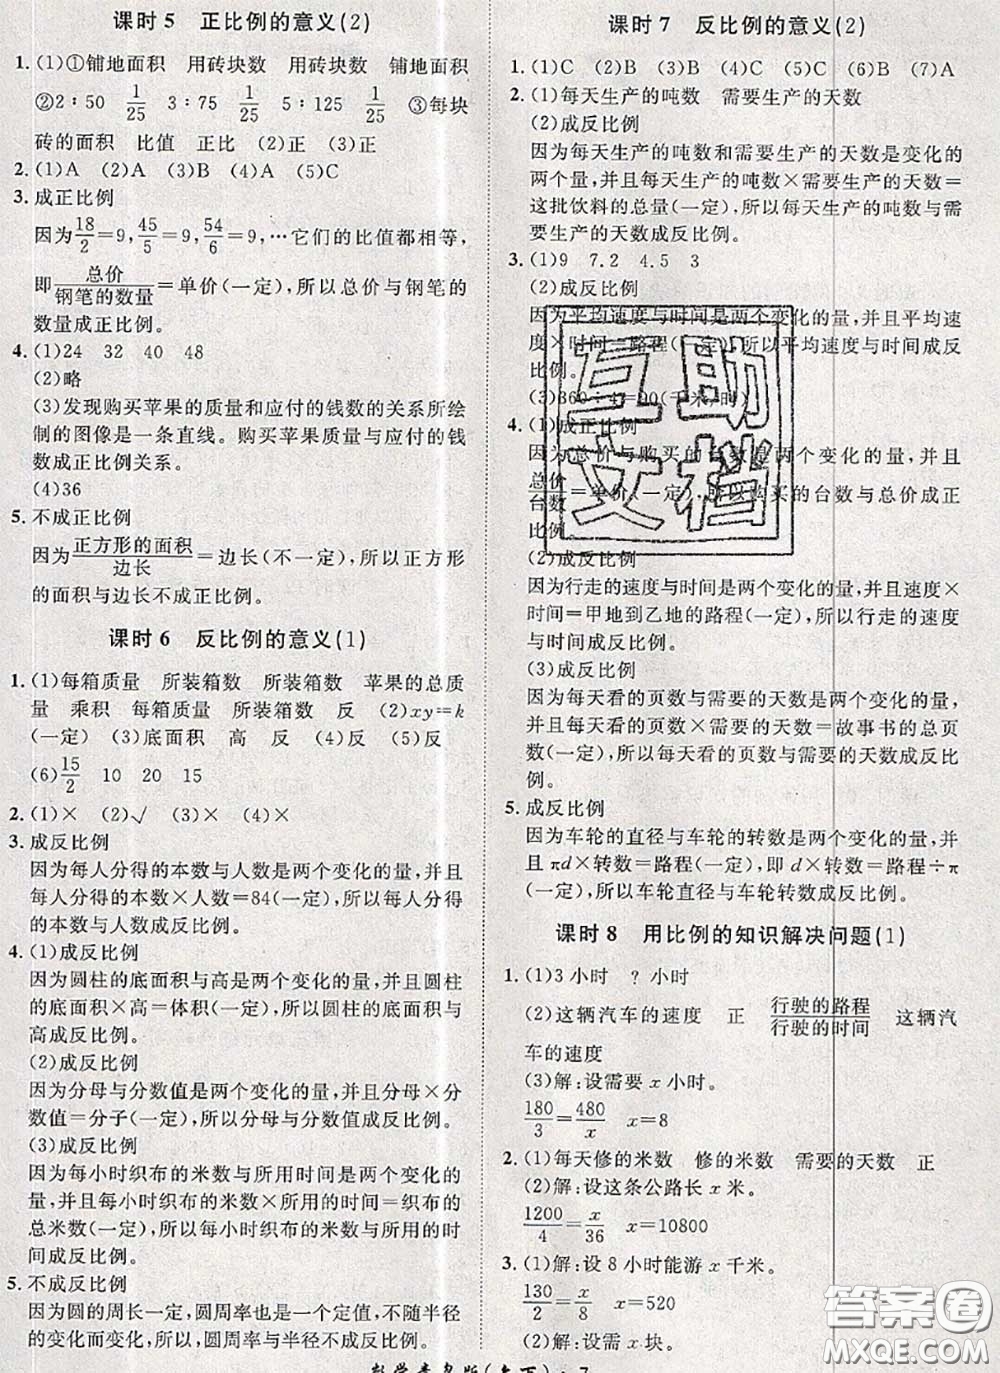 课时5 正比例的意义(2)
1. (1)①铺地面积 用砖块数 用砖块数 铺地面积
②2∶50 1/25 3∶75 1/25 5∶125 1/25 ③每块
砖的面积 比值 正比 (2)正 (3)正
2. (1)A (2)A (3)B (4)A (5)C
3. 成正比例
因为18/2=9,45/5=9,54/6=9,…它们的比值都相等,
即总价/钢笔的数量=单价(一定),所以总价与钢笔的
数量成正比例。
4. (1)24 32 40 48
(2)略
(3)发现购买苹果的质量和应付的钱数的关系所绘
制的图像是一条直线。购买苹果质量与应付的钱
数成正比例关系。
(4)36
5. 不成正比例
因为正方形的面积/边长=边长(不一定),所以正方形
的面积与边长不成正比例。
课时6 反比例的意义(1)
1. (1)每箱质量 所装箱数 所装箱数 苹果的总质
量 乘积 每箱质量 所装箱数 反 (2)xy=k
(一定) (3)底面积 高 反 (4)反 (5)反
(6)15/2 10 20 15
2. (1)× (2)√ (3)× (4)×
3. 成反比例
因为每人分得的本数与人数是两个变化的量,并且
每人分得的本数×人数=84(一定),所以每人分得
的本数与人数成反比例。
4. (1)成反比例
因为圆柱的底面积与高是两个变化的量,并且圆柱
的底面积×高=体积(一定),所以圆柱的底面积与
高成反比例。
(2)成反比例
因为分母与分数值是两个变化的量,并且分母×分
数值=分子(一定),所以分母与分数值成反比例。
(3)成反比例
因为每小时织布的米数与所用时间是两个变化的
量,并且每小时织布的米数×所用的时间=织布的
总米数(一定),所以每小时织布的米数与所用的时
间成反比例。
5. 不成反比例
因为圆的周长一定,圆周率也是一个定值,不随半径
的变化而变化,所以,圆周率与半径不成反比例。
课时7 反比例的意义(2)
1. (1)C (2)B (3)B (4)C (5)C (6)B (7)A
2. (1)每天生产的吨数 需要生产的天数
(2)成反比例
因为每天生产的吨数和需要生产的天数是变化的
两个量,并且每天生产的吨数×需要生产的天数=
这批饮料的总量(一定),所以每天生产的吨数与需
要生产的天数成反比例。
3. (1)9 7.2 4.5 3
(2)成反比例
因为平均速度与时间是两个变化的量,并且平均速
度×时间=路程(一定),所以平均速度与时间成反
比例。
(3)360÷4=90(千米/时)
4. (1)成正比例
因为总价与购买的台数是两个变化的量,并且
总价/台数=单价(一定),所以购买的台数与总价成正
比例。
(2)成反比例
因为行走的速度与时间是两个变化的量,并且速度×
时间=甲地到乙地的路程(一定),所以行走的速度
与时间成反比例。
(3)成反比例
因为每天看的页数与需要的天数是两个变化的量,
并且每天看的页数×需要的天数=故事书的总页
数(一定),所以每天看的页数与需要的天数成反比
例。
5. 成反比例
因为车轮的直径与车轮的转数是两个变化的量,并
且πd×转数=路程(一定),即d×转数=路程÷π
(一定),所以车轮直径与车轮转数成反比例。
课时8 用比例的知识解决问题(1)
1. (1)3小时 ?小时
(2)这辆汽车的速度 正 行驶的路程/行驶的时间 这辆汽
车的速度
(3)解:设需要x小时。
180/3=480/x x=8
2. (1)每天修的米数 修的米数 需要的天数 正
(2)解:设这条公路长x米。
1200/4=x/36 x=10800
3. (1)解:设8小时能游x千米。
130/2=x/8 x=520
(2)解:设需x块。
互助
文档
答案圈
MXQE.COM